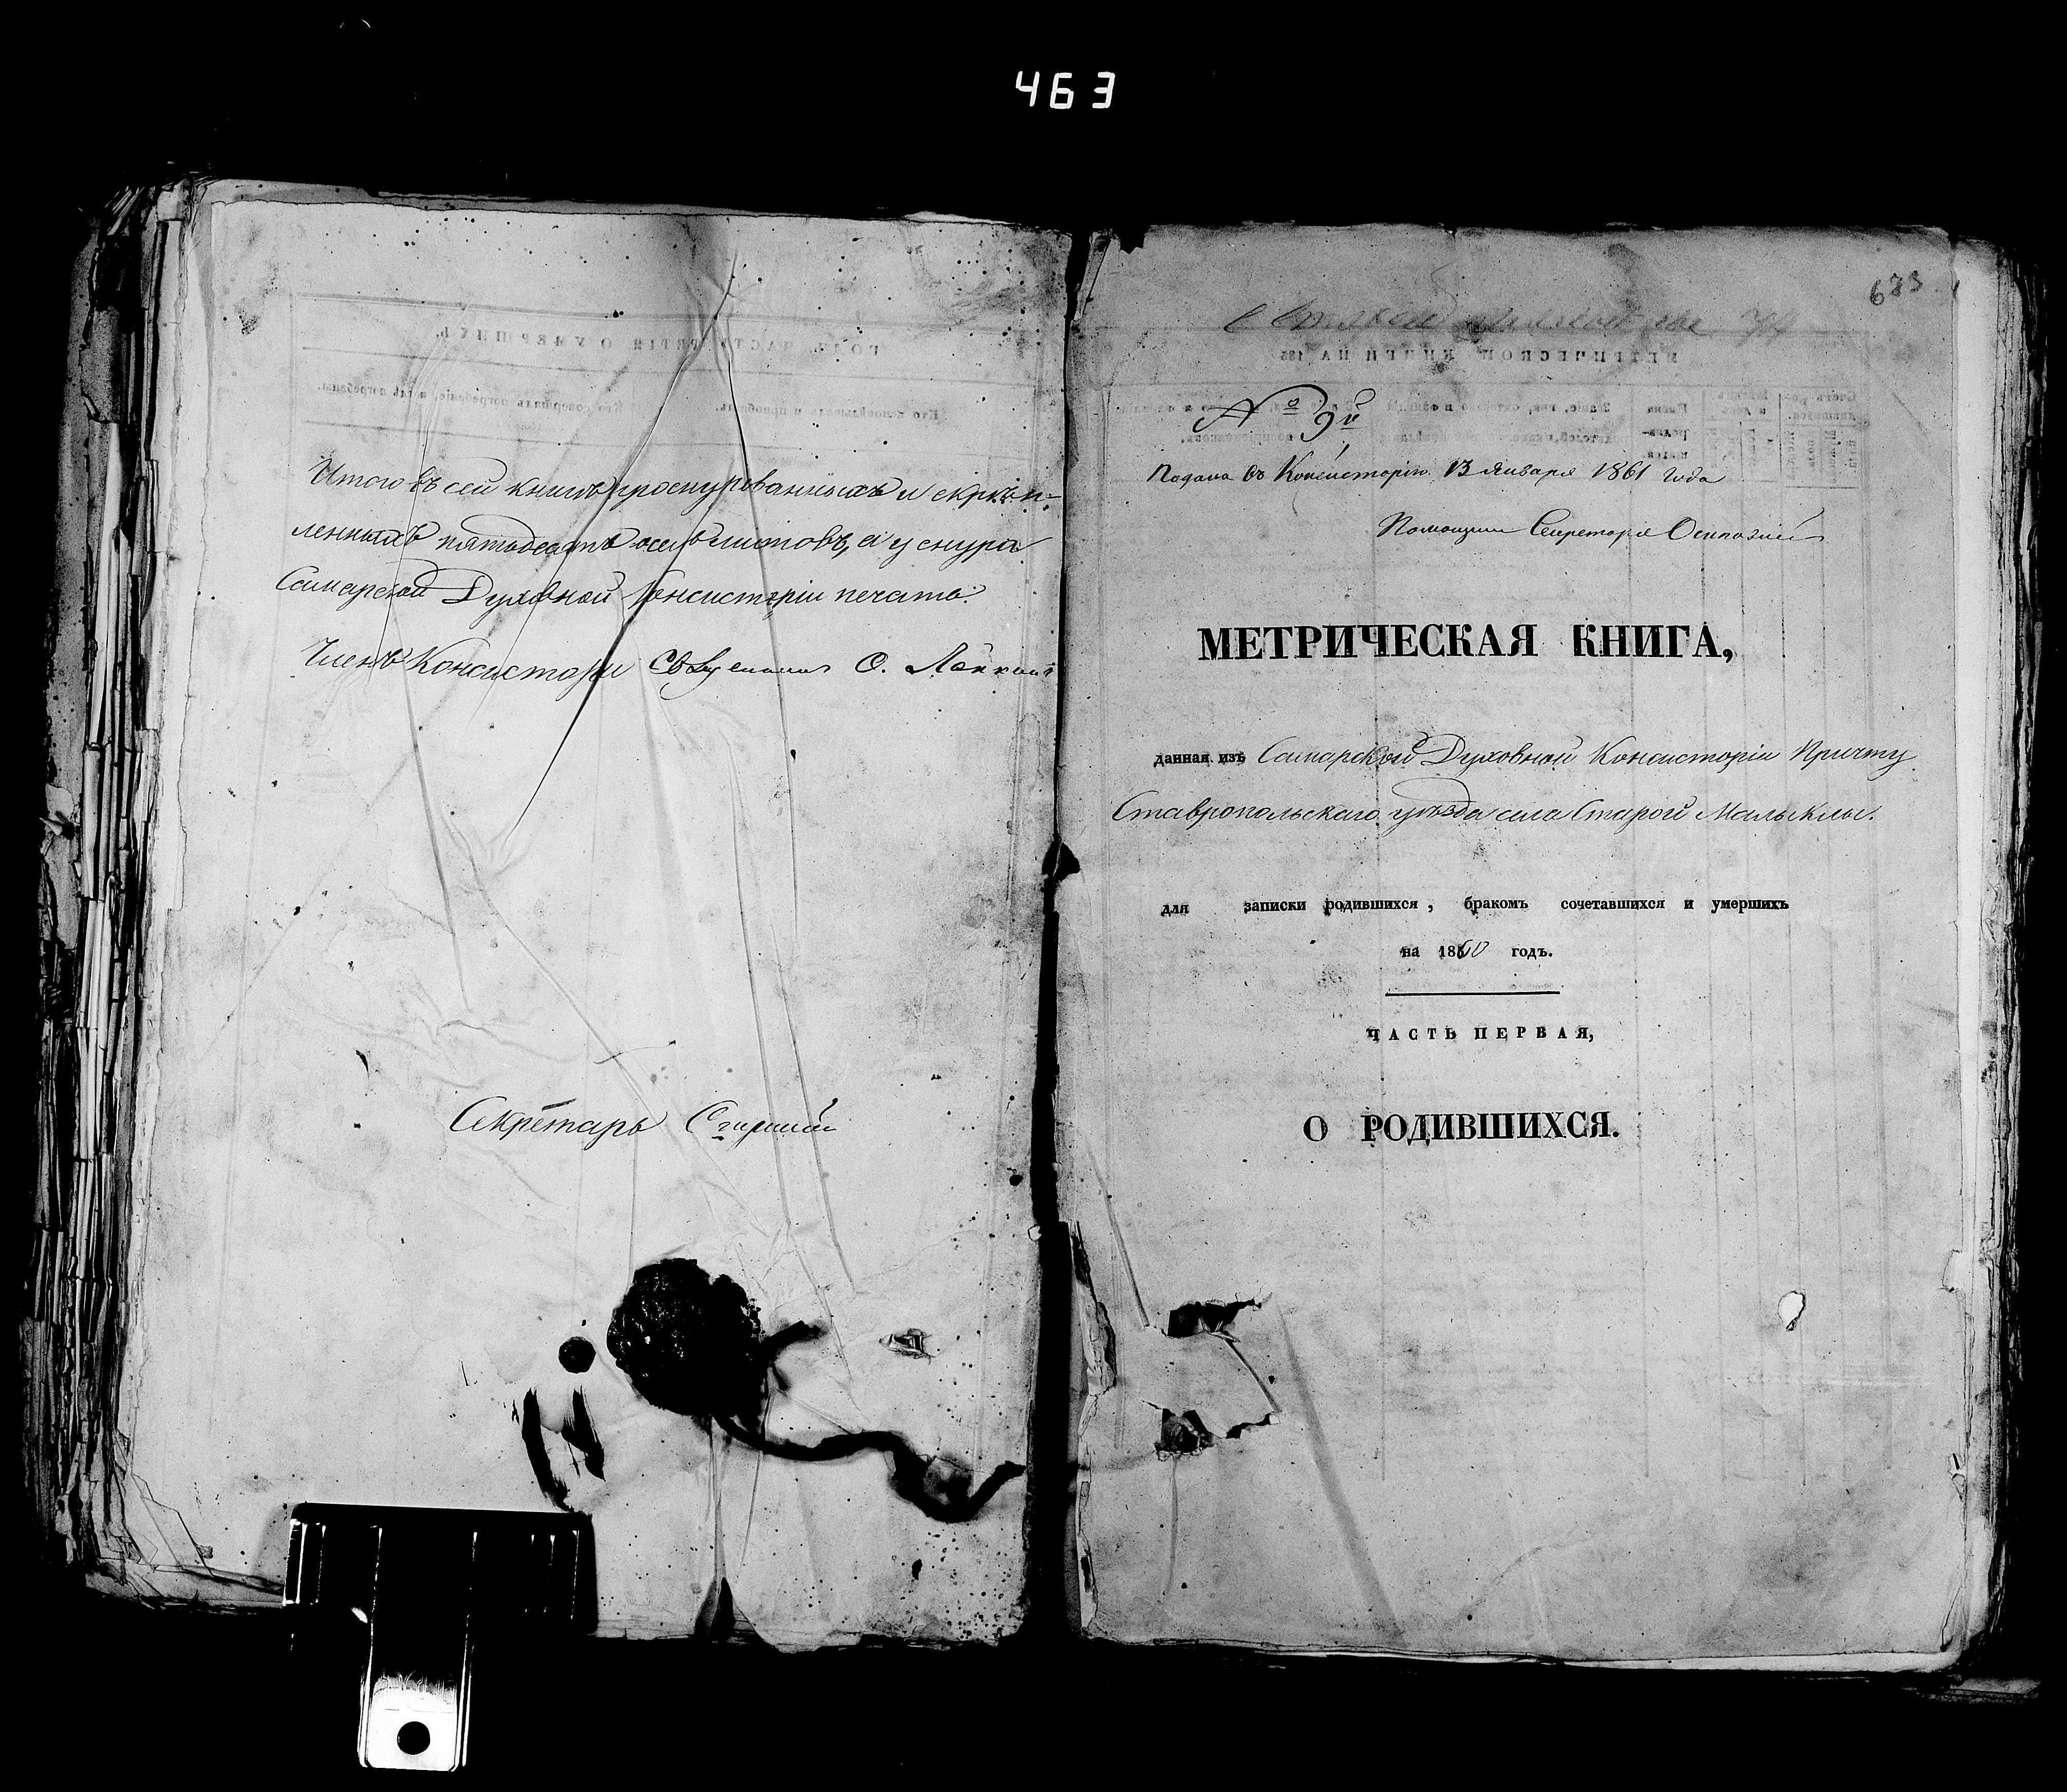 463
Итого въ сей книгѣ прошнурованныхъ и скрѣп-
ленныхъ пятьдесятъ осемь листовъ, а у снура
Самарской Духовной Консисторіи печать.
Членъ Консисторіи Священникъ О.
Секретарь
683
№ 9й
Подана въ Консисторію 13 Января 1861 года
Помощник Секретаря
МЕТРИЧЕСКАЯ КНИГА,
данная изъ Самарской Духовной Консисторіи Причту
Ставропольскаго уѣзда села Старой Малыклы.
для записки родившихся, бракомъ сочетавшихся и умершихъ
на 1860 годъ.
ЧАСТЬ ПЕРВАЯ,
О РОДИВШИХСЯ.